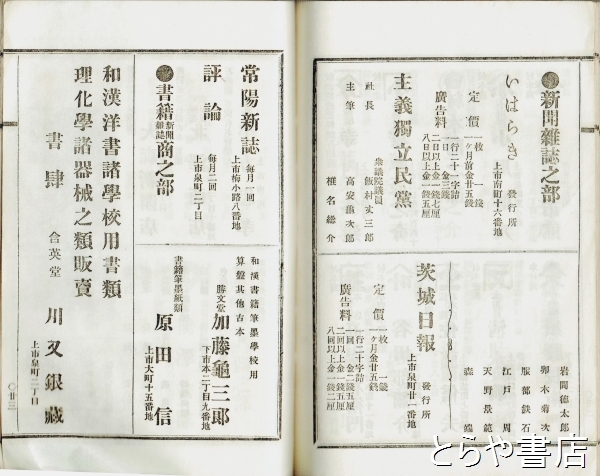 新聞雜誌之部
いはらき
發行所
上市南町十六番地
定價
一枚一錢
一ケ月前金廿五錢
廣告料
一行二十一字詰
一日金三錢
二日以上金一錢七厘
八日以上金一錢五厘
主義獨立民黨
社長
衆議院議員
飯村丈三郎
主筆
高安龜次郎
椎名總介
茨城日報
發行所
上市泉町廿一番地
定價
一枚一錢
一ケ月金廿五錢
廣告料
一行二十字詰
一回金二錢五厘
二回以上金一錢五厘
八回以上金一錢二厘
岩間德太郎
卯木菊次
服部鉄石
江戸周
天野景範
森
常陽新誌
每月一回
上市梅小路八番地
評論
每月二回
上市泉町二丁目
書籍新聞雜誌商之部
和漢書籍筆墨學校用
算盤其他古本
勝文堂
加藤龜三郎
下市本二丁目九番地
書籍筆墨紙類
原田信
上市大町十五番地
和漢洋書諸學校用書類
理化學諸器械之類販賣
書肆
合英堂
川又銀藏
上市泉町二丁目
〇廿三
とらや書店